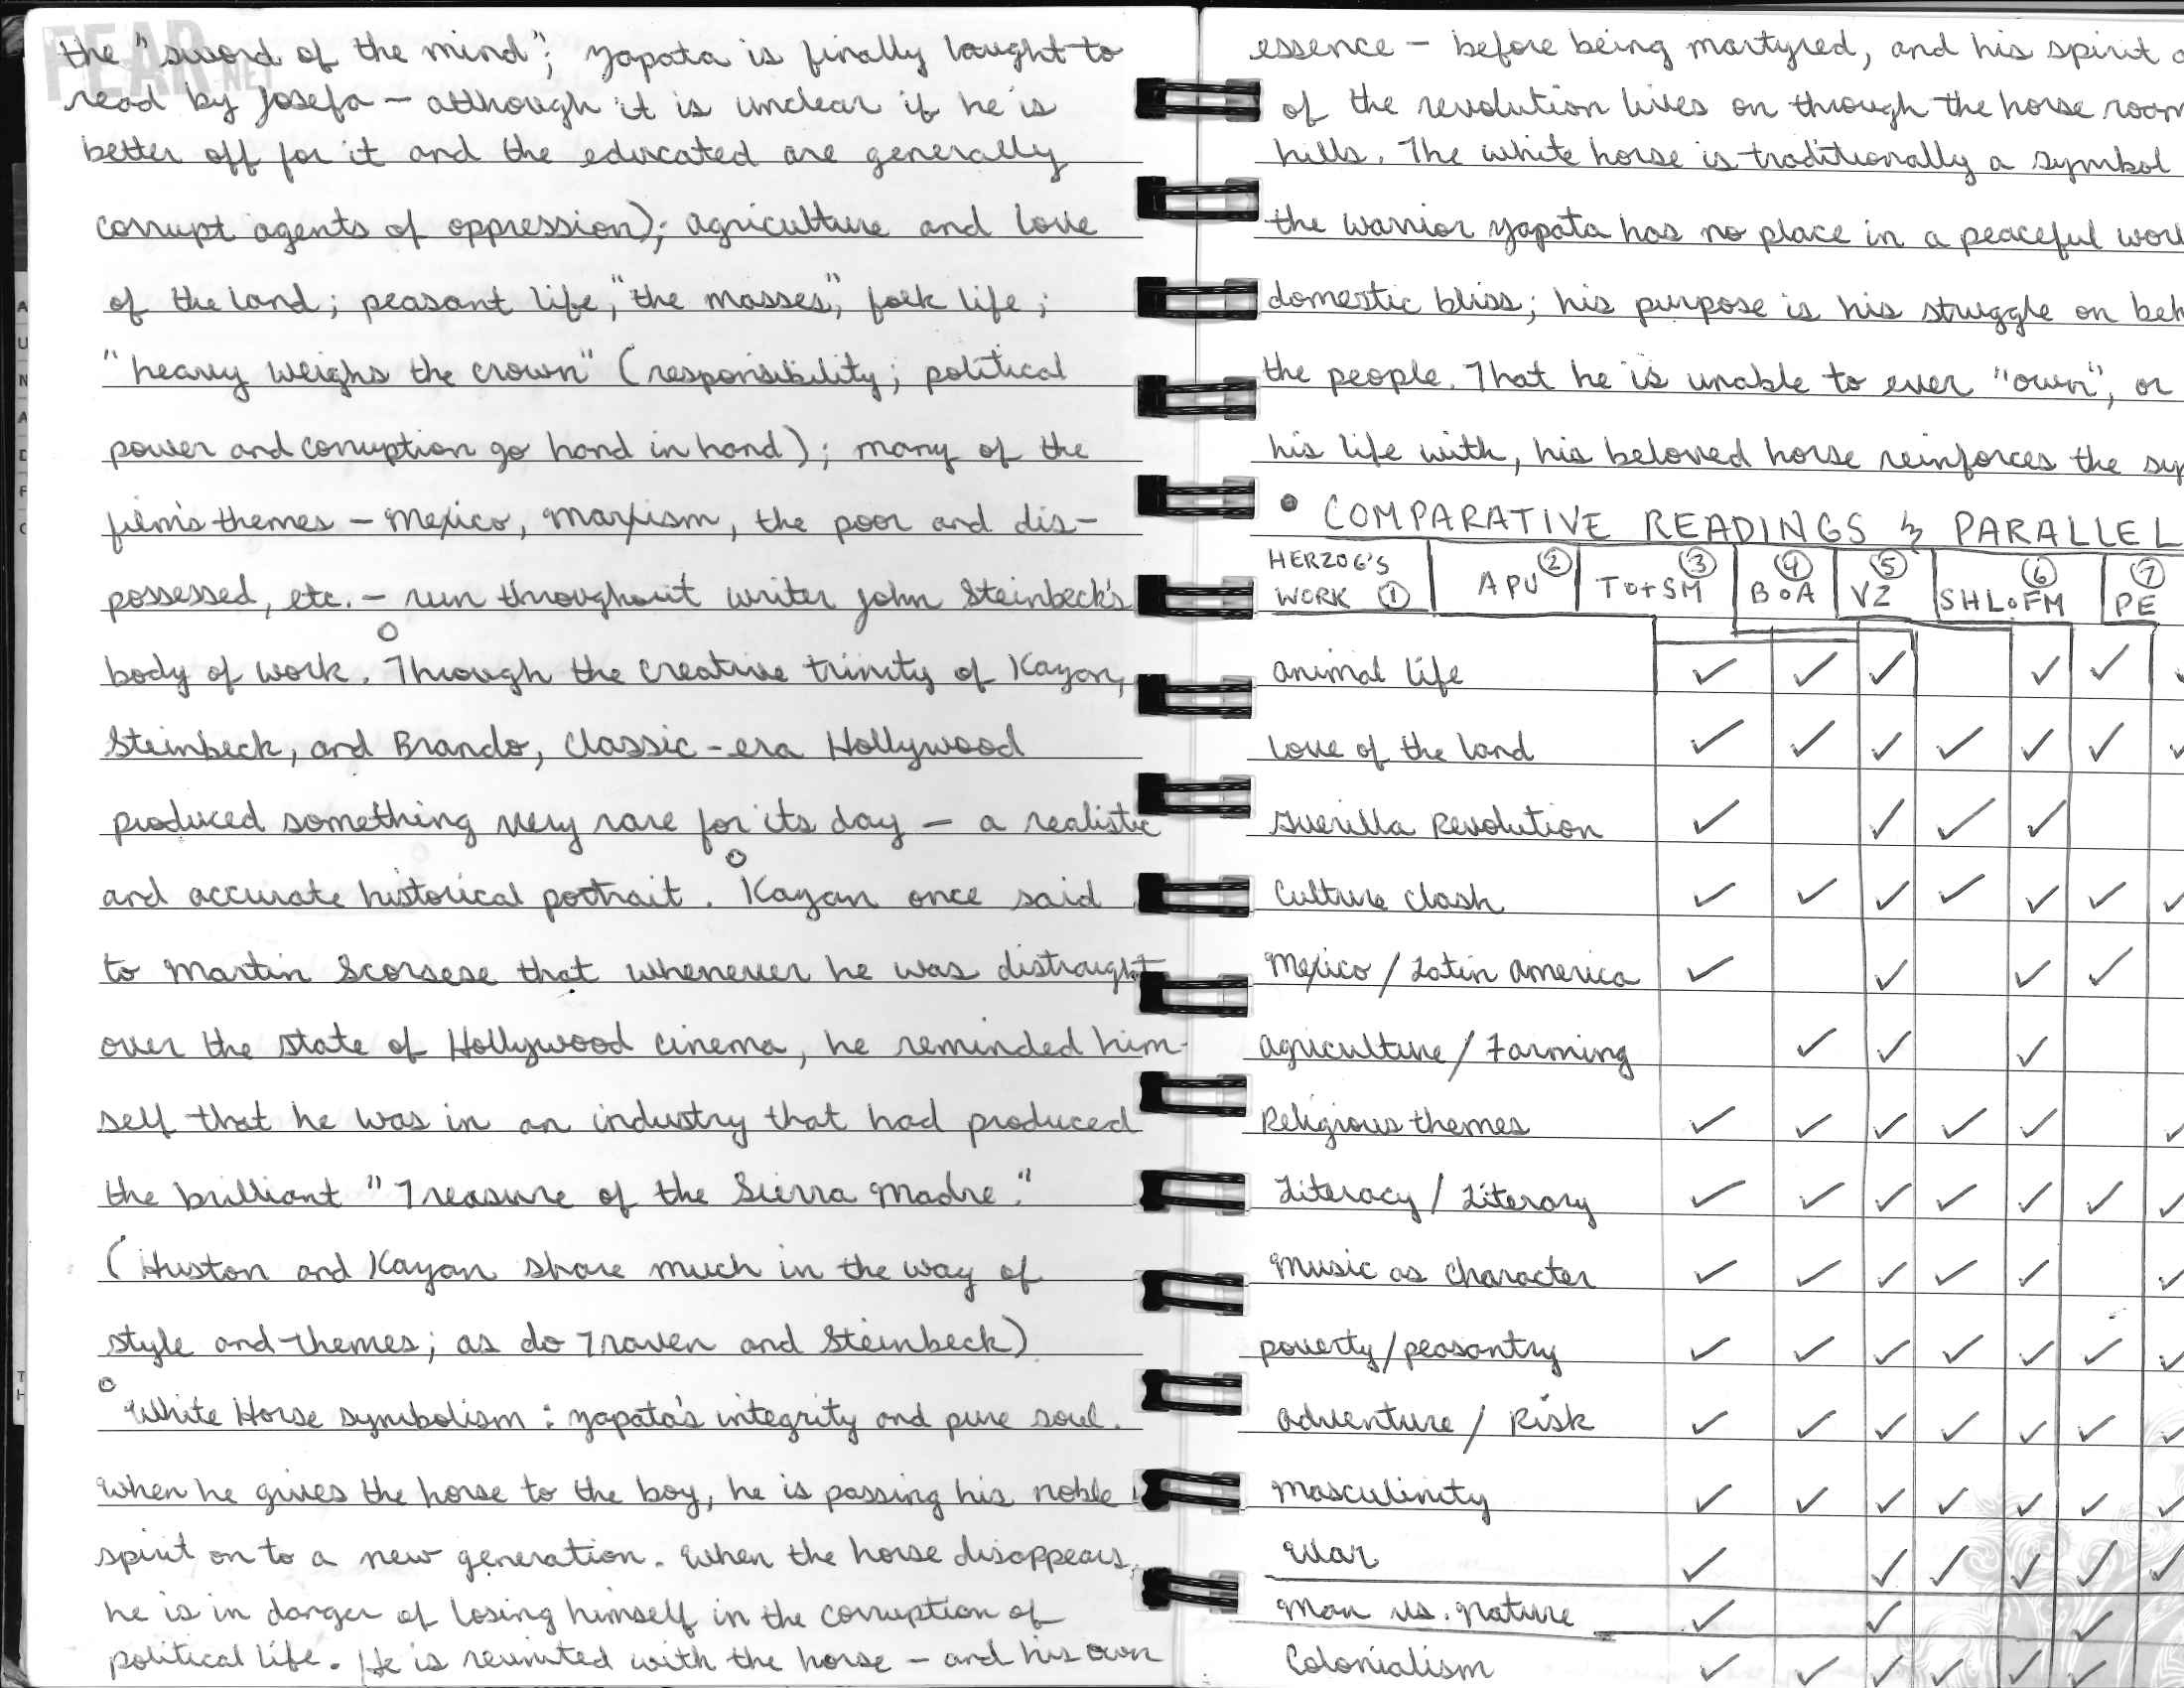 FEAR.NET
the "sword of the mind"; Zapata is finally taught to
read by Josefa — although it is unclear if he is
better off for it and the educated are generally
corrupt agents of oppression); agriculture and love
of the land; peasant life, "the masses", folk life;
"heavy weighs the crown" (responsibility; political
power and corruption go hand in hand); many of the
film's themes — Mexico, Marxism, the poor and dis-
possessed, etc. — run throughout writer John Steinbeck's
body of work. Through the creative trinity of Kazan,
Steinbeck, and Brando, classic-era Hollywood
produced something very rare for its day — a realistic
and accurate historical portrait. Kazan once said
to Martin Scorsese that whenever he was distraught
over the state of Hollywood cinema, he reminded him-
self that he was in an industry that had produced
the brilliant "Treasure of the Sierra Madre."
(Huston and Kazan share much in the way of
style and themes; as do Traven and Steinbeck)
White Horse symbolism: Zapata's integrity and pure soul.
When he gives the horse to the boy, he is passing his noble
spirit on to a new generation. When the horse disappears,
he is in danger of losing himself in the corruption of
political life. He is reunited with the horse — and his own
essence — before being martyred, and his spirit
of the revolution lives on through the horse
hills. The white horse is traditionally a symbol
the warrior Zapata has no place in a peaceful
domestic bliss; his purpose is his struggle on
the people. That he is unable to ever "own", or
his life with, his beloved horse reinforces the
• COMPARATIVE READINGS & PARALLEL
HERZOG'S WORK ① APU ② TotSM ③ BoA ④ VZ ⑤ SHLoFM ⑥ PE ⑦
Animal life ✓ ✓ ✓ ✓ ✓ ✓
Love of the land ✓ ✓ ✓ ✓ ✓ ✓ ✓
Guerilla Revolution ✓ ✓ ✓ ✓
Culture clash ✓ ✓ ✓ ✓ ✓ ✓ ✓
Mexico / Latin America ✓ ✓ ✓ ✓
Agriculture / Farming ✓ ✓ ✓
Religious themes ✓ ✓ ✓ ✓ ✓ ✓
Literacy / Literary ✓ ✓ ✓ ✓ ✓ ✓ ✓
Music as character ✓ ✓ ✓ ✓ ✓ ✓
poverty/peasantry ✓ ✓ ✓ ✓ ✓ ✓ ✓
Adventure / Risk ✓ ✓ ✓ ✓ ✓ ✓ ✓
Masculinity ✓ ✓ ✓ ✓ ✓ ✓ ✓
War ✓ ✓ ✓ ✓ ✓ ✓
Man vs. Nature ✓ ✓ ✓
Colonialism ✓ ✓ ✓ ✓ ✓ ✓